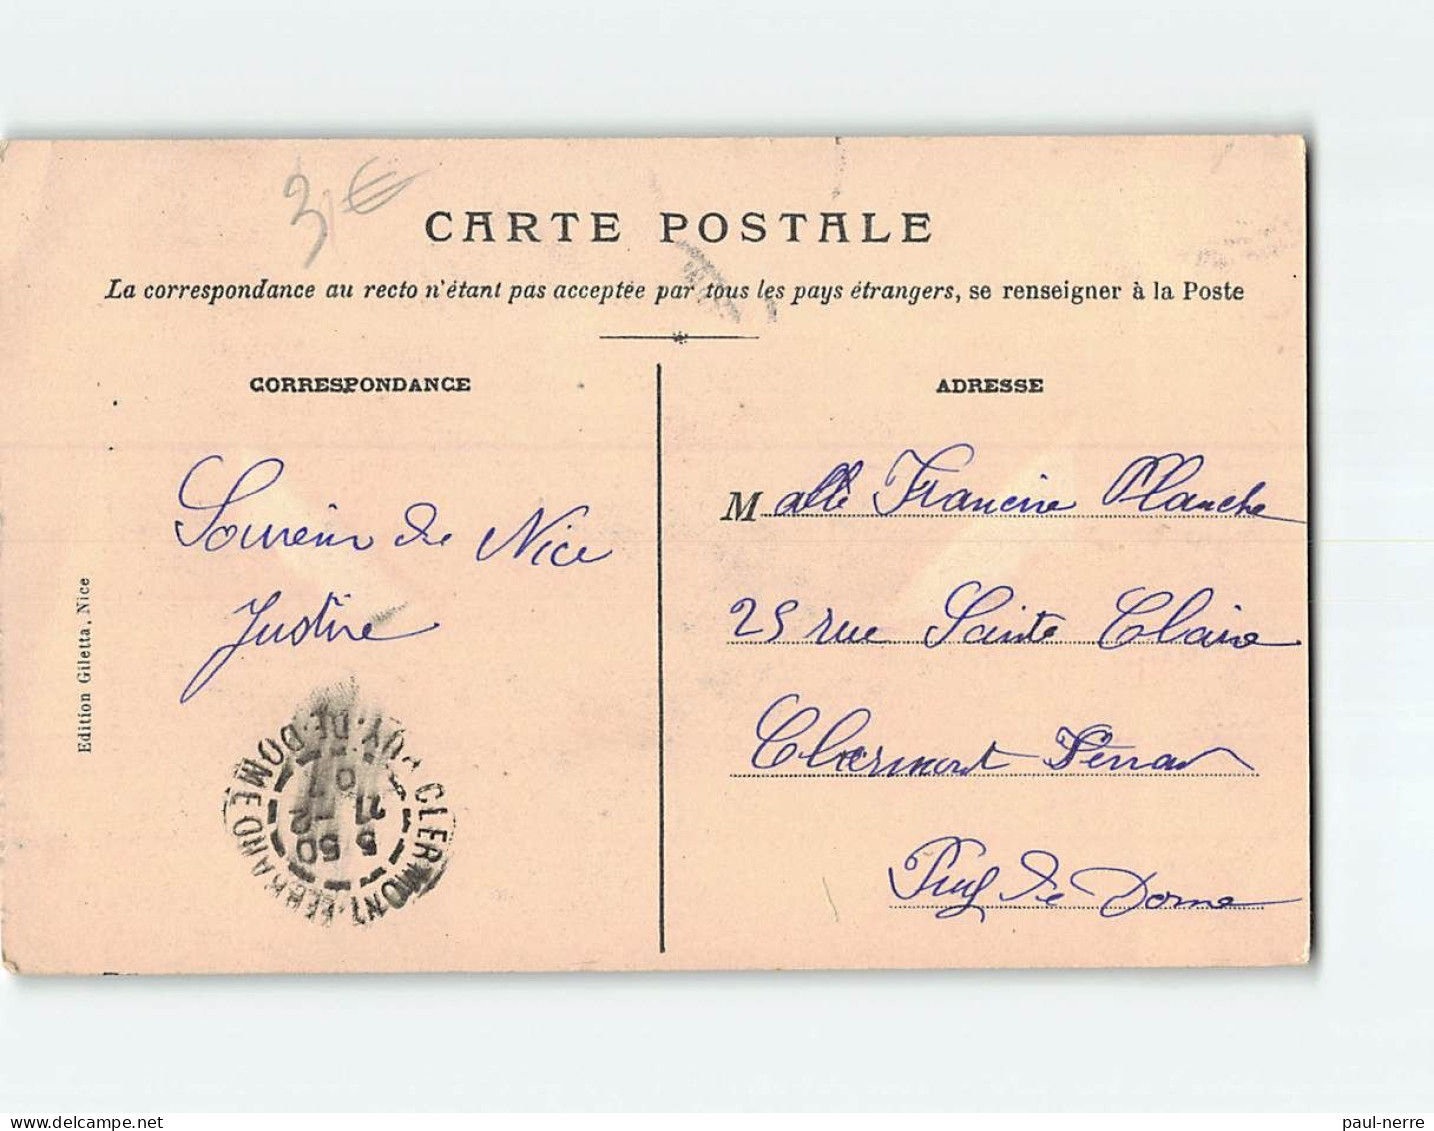 3,€
CARTE POSTALE
La correspondance au recto n'étant pas acceptée par tous les pays étrangers, se renseigner à la Poste
CORRESPONDANCE
Souvenir de Nice
Justine
Edition Giletta, Nice
CLERMONT-FERRAND PUY-DE-DOME
5 50
11 -2
07
ADRESSE
Melle Francine Planche
25 rue Sainte Claire
Clermont Ferrand
Puy de Dome
paul-nerre